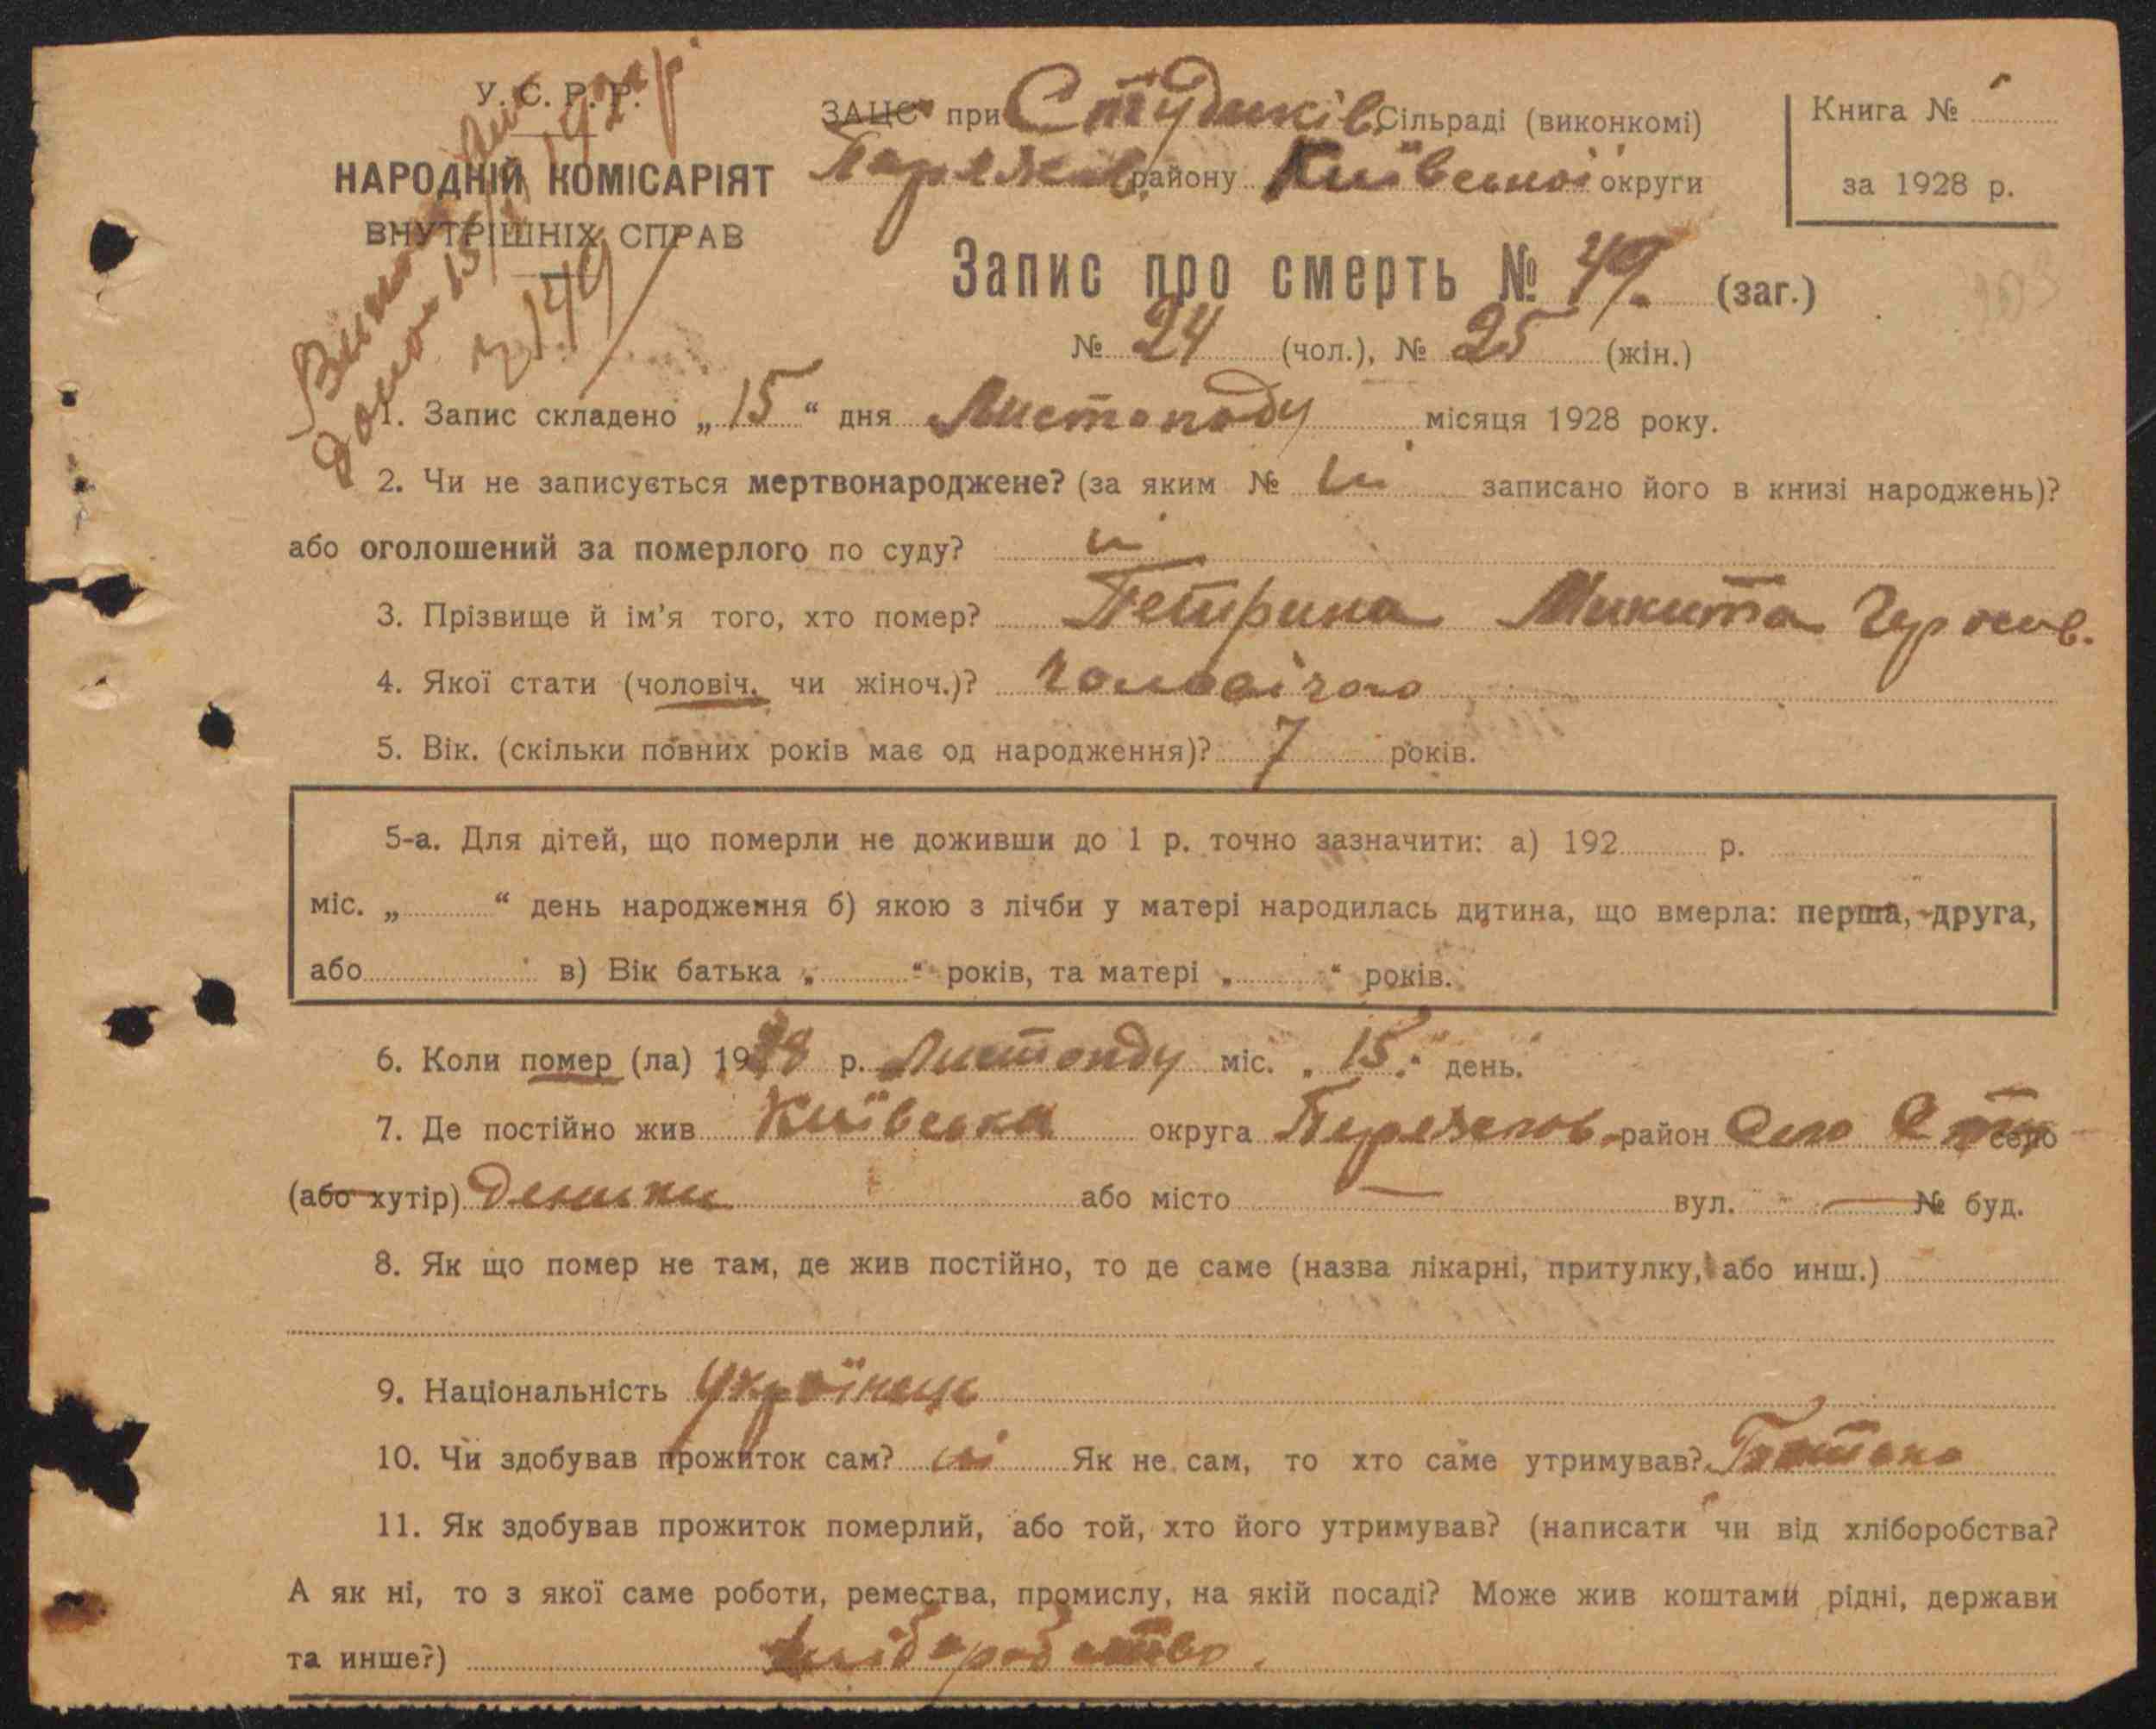 У. С. Р. Р.
НАРОДНІЙ КОМІСАРІЯТ
ВНУТРІШНІХ СПРАВ
ЗАЦС при Студинків Сільраді (виконкомі)
району Київської округи
Книга №
за 1928 р.
Запис про смерть № 49. (заг.)
№ 24 (чол.), № 25 (жін.)
1. Запис складено „15“ дня Листопаду місяця 1928 року.
2. Чи не записується мертвонароджене? (за яким № записано його в книзі народжень)?
або оголошений за померлого по суду?
3. Прізвище й ім’я того, хто помер? Петрина Микита
4. Якої стати (чоловіч. чи жіноч.)? чоловічого
5. Вік. (скільки повних років має од народження)? 7 років.
5-а. Для дітей, що померли не доживши до 1 р. точно зазначити: а) 192 р.
міс. „ “ день народження б) якою з лічби у матері народилась дитина, що вмерла: перша, друга,
або в) Вік батька „ “ років, та матері „ “ років.
6. Коли помер (ла) 1928 р. Листопду міс. „15“ день.
7. Де постійно жив Київська округа район село Сту село
(або хутір) деники або місто — вул. — № буд.
8. Як що помер не там, де жив постійно, то де саме (назва лікарні, притулку, або инш.)
9. Національність Українець
10. Чи здобував прожиток сам? ні Як не сам, то хто саме утримував? Батько
11. Як здобував прожиток померлий, або той, хто його утримував? (написати чи від хліборобства?
А як ні, то з якої саме роботи, ремества, промислу, на якій посаді? Може жив коштами рідні, держави
та инше?) хліборобство.